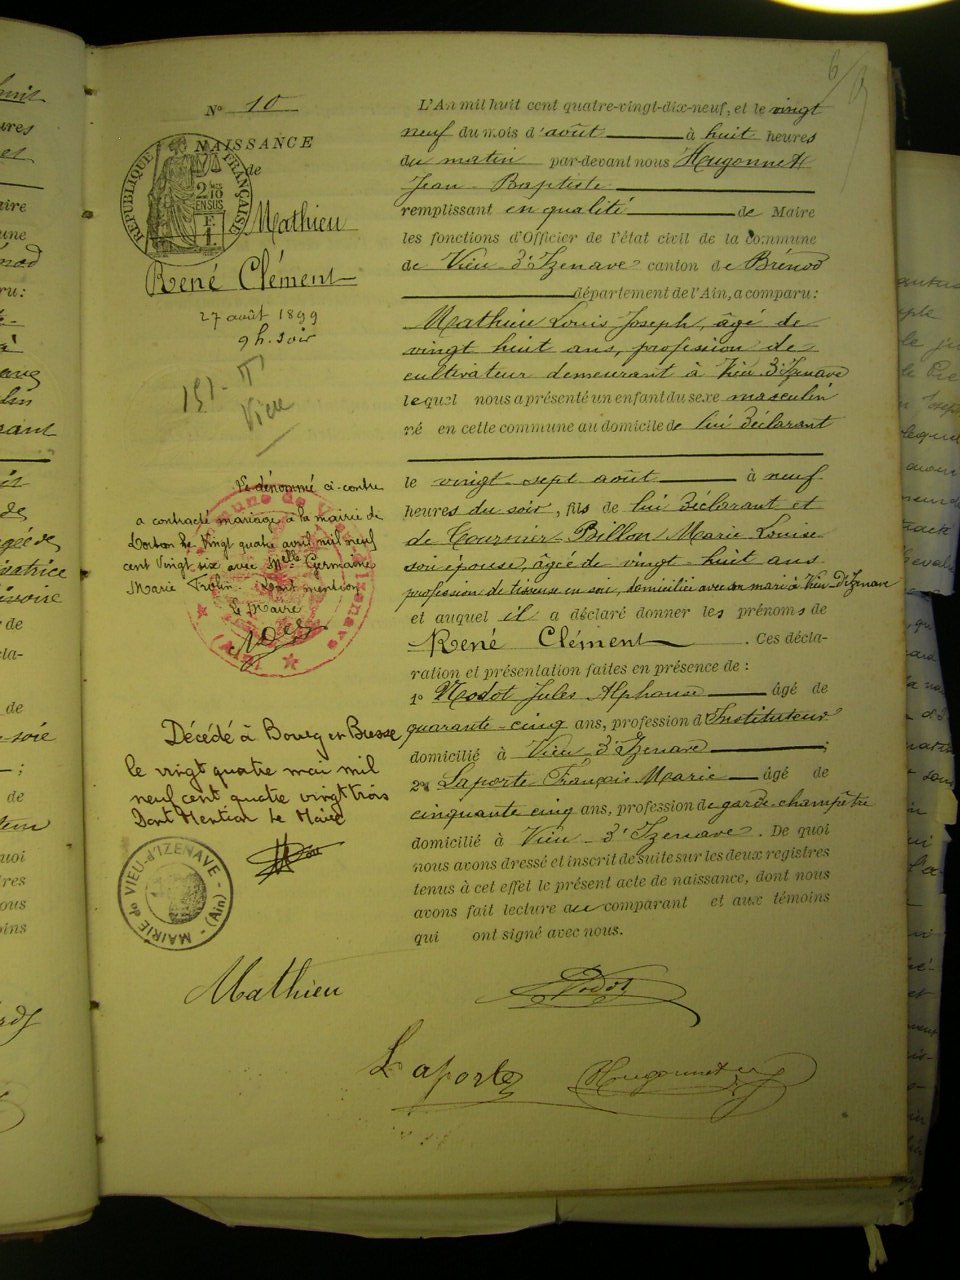 N° 10
NAISSANCE
de
Mathieu
René Clément
27 août 1899
9 h. Soir
RÉPUBLIQUE FRANÇAISE
2/10 EN SUS
F. 1.
Vieu
Le dénommé ci-contre
a contracté mariage à la mairie de
Dortan le vingt quatre avril mil neuf
cent vingt six avec Melle Germaine
Marie Dont mention
Le Maire
Décédé à Bourg en Bresse
le vingt quatre mai mil
neuf cent quatre vingt trois
Dont Mention le Maire
MAIRIE de VIEU-d'IZENAVE - (Ain) -
L'An mil huit cent quatre-vingt-dix-neuf, et le vingt
neuf du mois d'août à huit heures
du matin par-devant nous Hugonnet
Jean-Baptiste
remplissant en qualité de Maire
les fonctions d'Officier de l'état civil de la commune
de Vieu-d'Izenave canton de Brénod
département de l'Ain, a comparu :
Mathieu Louis Joseph, âgé de
vingt huit ans, profession de
cultivateur demeurant à Vieu-d'Izenave
lequel nous a présenté un enfant du sexe masculin
né en cette commune au domicile de lui déclarant
le vingt-sept août à neuf
heures du soir, fils de lui déclarant et
de Tournier-Billon Marie Louise
son épouse, âgée de vingt-huit ans
profession de tisseuse en soie, domiciliée avec son mari à Vieu-d'Izenave
et auquel il a déclaré donner les prénoms de
René Clément . Ces décla-
ration et présentation faites en présence de :
1° Nodot Jules Alphonse âgé de
quarante-cinq ans, profession d'Instituteur
domicilié à Vieu-d'Izenave ;
2° Laporte François Marie âgé de
cinquante cinq ans, profession de garde-champêtre
domicilié à Vieu-d'Izenave . De quoi
nous avons dressé et inscrit de suite sur les deux registres
tenus à cet effet le présent acte de naissance, dont nous
avons fait lecture au comparant et aux témoins
qui ont signé avec nous.
Mathieu
Nodot
Laporte
Hugonnet